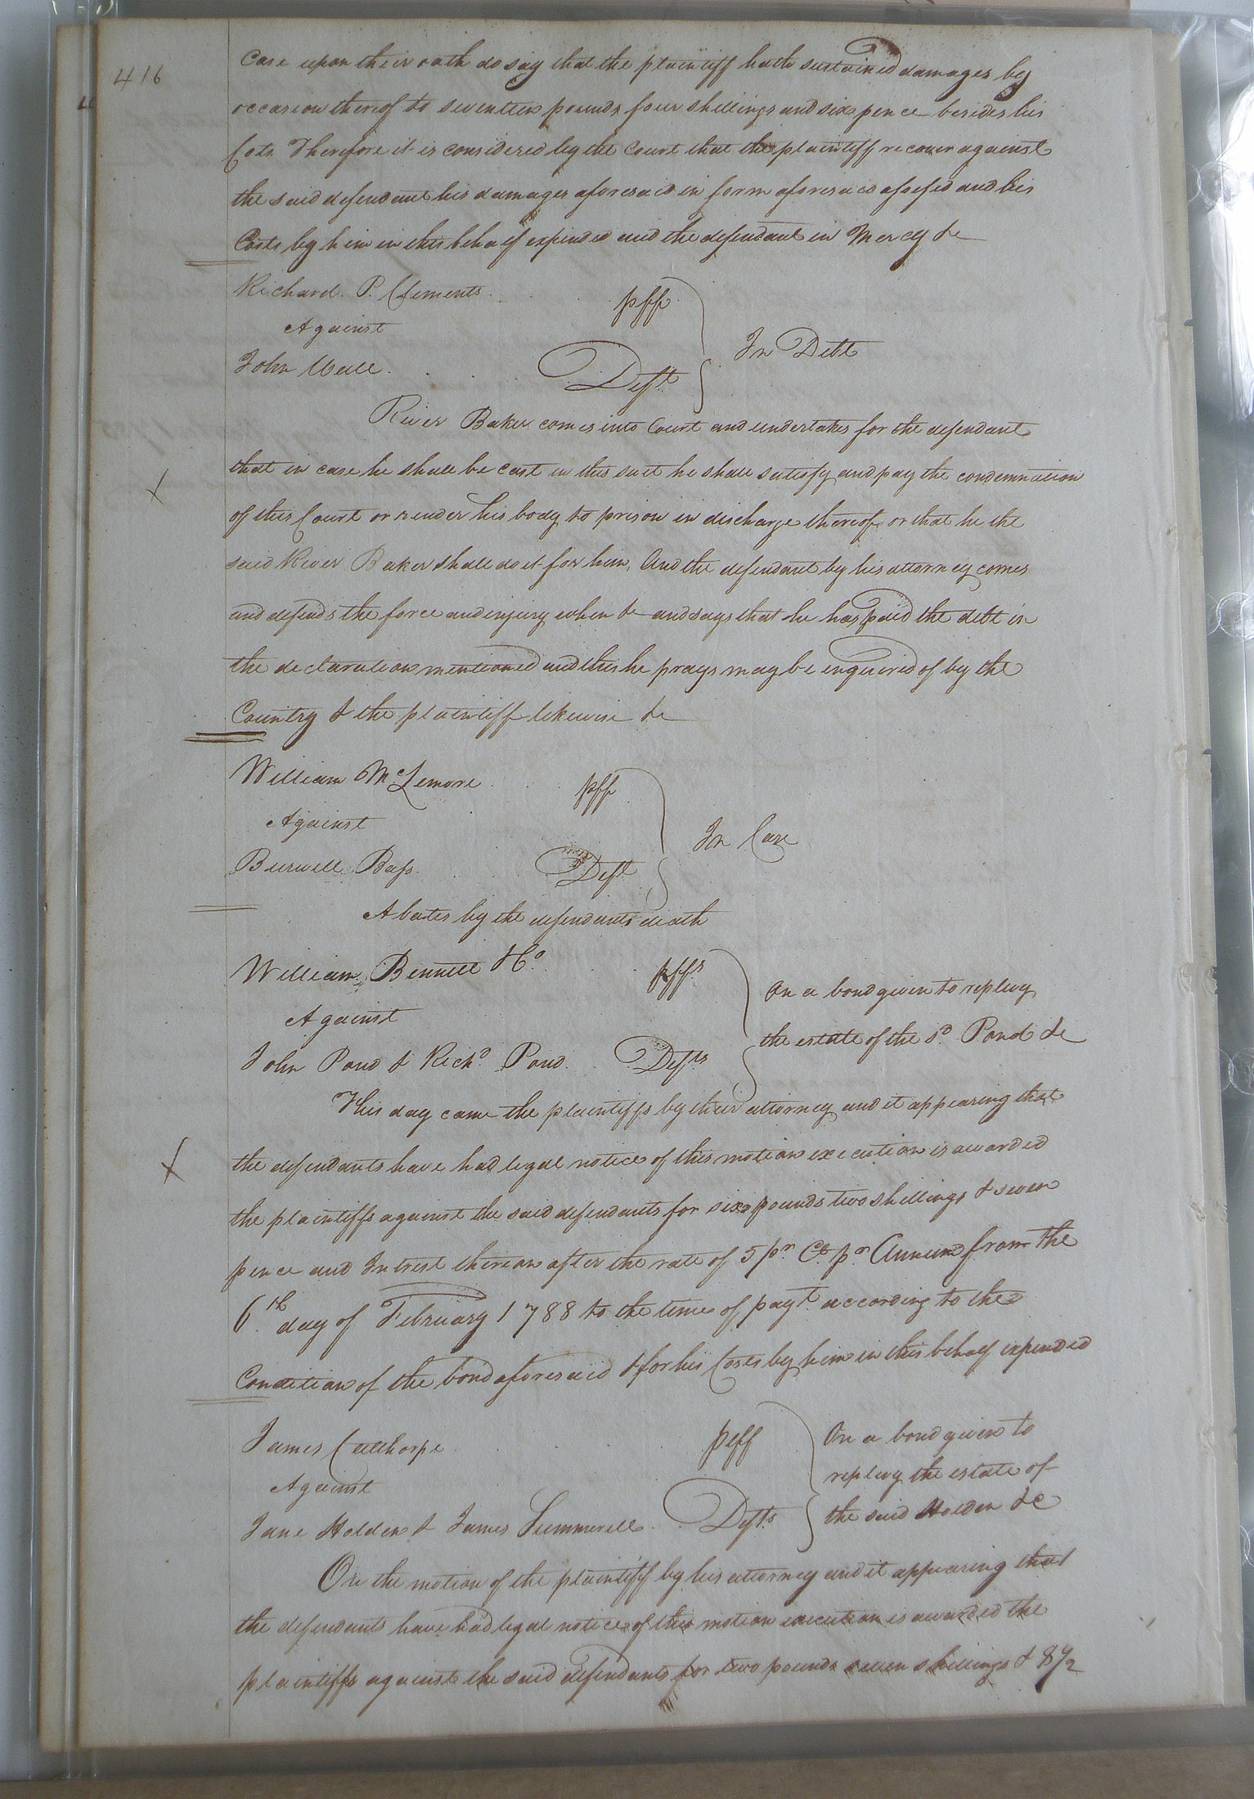 416
Case upon their oath do say that the plaintiff hath sustained damages by
occasion thereof to seventeen pounds four shillings and six pence besides his
Costs Therefore it is considered by the Court that the plaintiff recover against
the said defendant his damages aforesaid in form aforesaid assessed and his
Costs by him in this behalf expended and the defendant in Mercy &c
Richard P. Clements plff
Against
In Debt
John Wall Deft
River Baker comes into Court and undertakes for the defendant
that in case he shall be cast in this suit he shall satisfy and pay the condemnation
of this Court or render his body to prison in discharge thereof or that he the
said River Baker shall do it for him, And the defendant by his attorney comes
and defends the force and injury when &c and says that he has paid the debt in
the declaration mentioned and this he prays may be enquired of by the
Country & the plaintiff likewise &c
William McLemore plff
Against
In Case
Burwell Bass Deft
Abates by the defendants death
William Bennett & Co plffs
On a bond given to replevy
Against
the estate of the sd Pond &c
John Pond & Richd Pond Defts
This day came the plaintiffs by their attorney and it appearing that
the defendants have had legal notice of this motion execution is awarded
the plaintiffs against the said defendants for six pounds two shillings & seven
pence and Interest thereon after the rate of 5 pr Ct pr Annum from the
6th day of February 1788 to the time of payt according to the
Condition of the bond aforesaid & for his Costs by him in this behalf expended
James Calthorpe plff
On a bond given to
Against
replevy the estate of
Jane Holden & James Summerell Defts
the said Holden &c
On the motion of the plaintiff by his attorney and it appearing that
the defendants have had legal notice of this motion execution is awarded the
plaintiffs against the said defendants for two pounds seven shillings & 8½